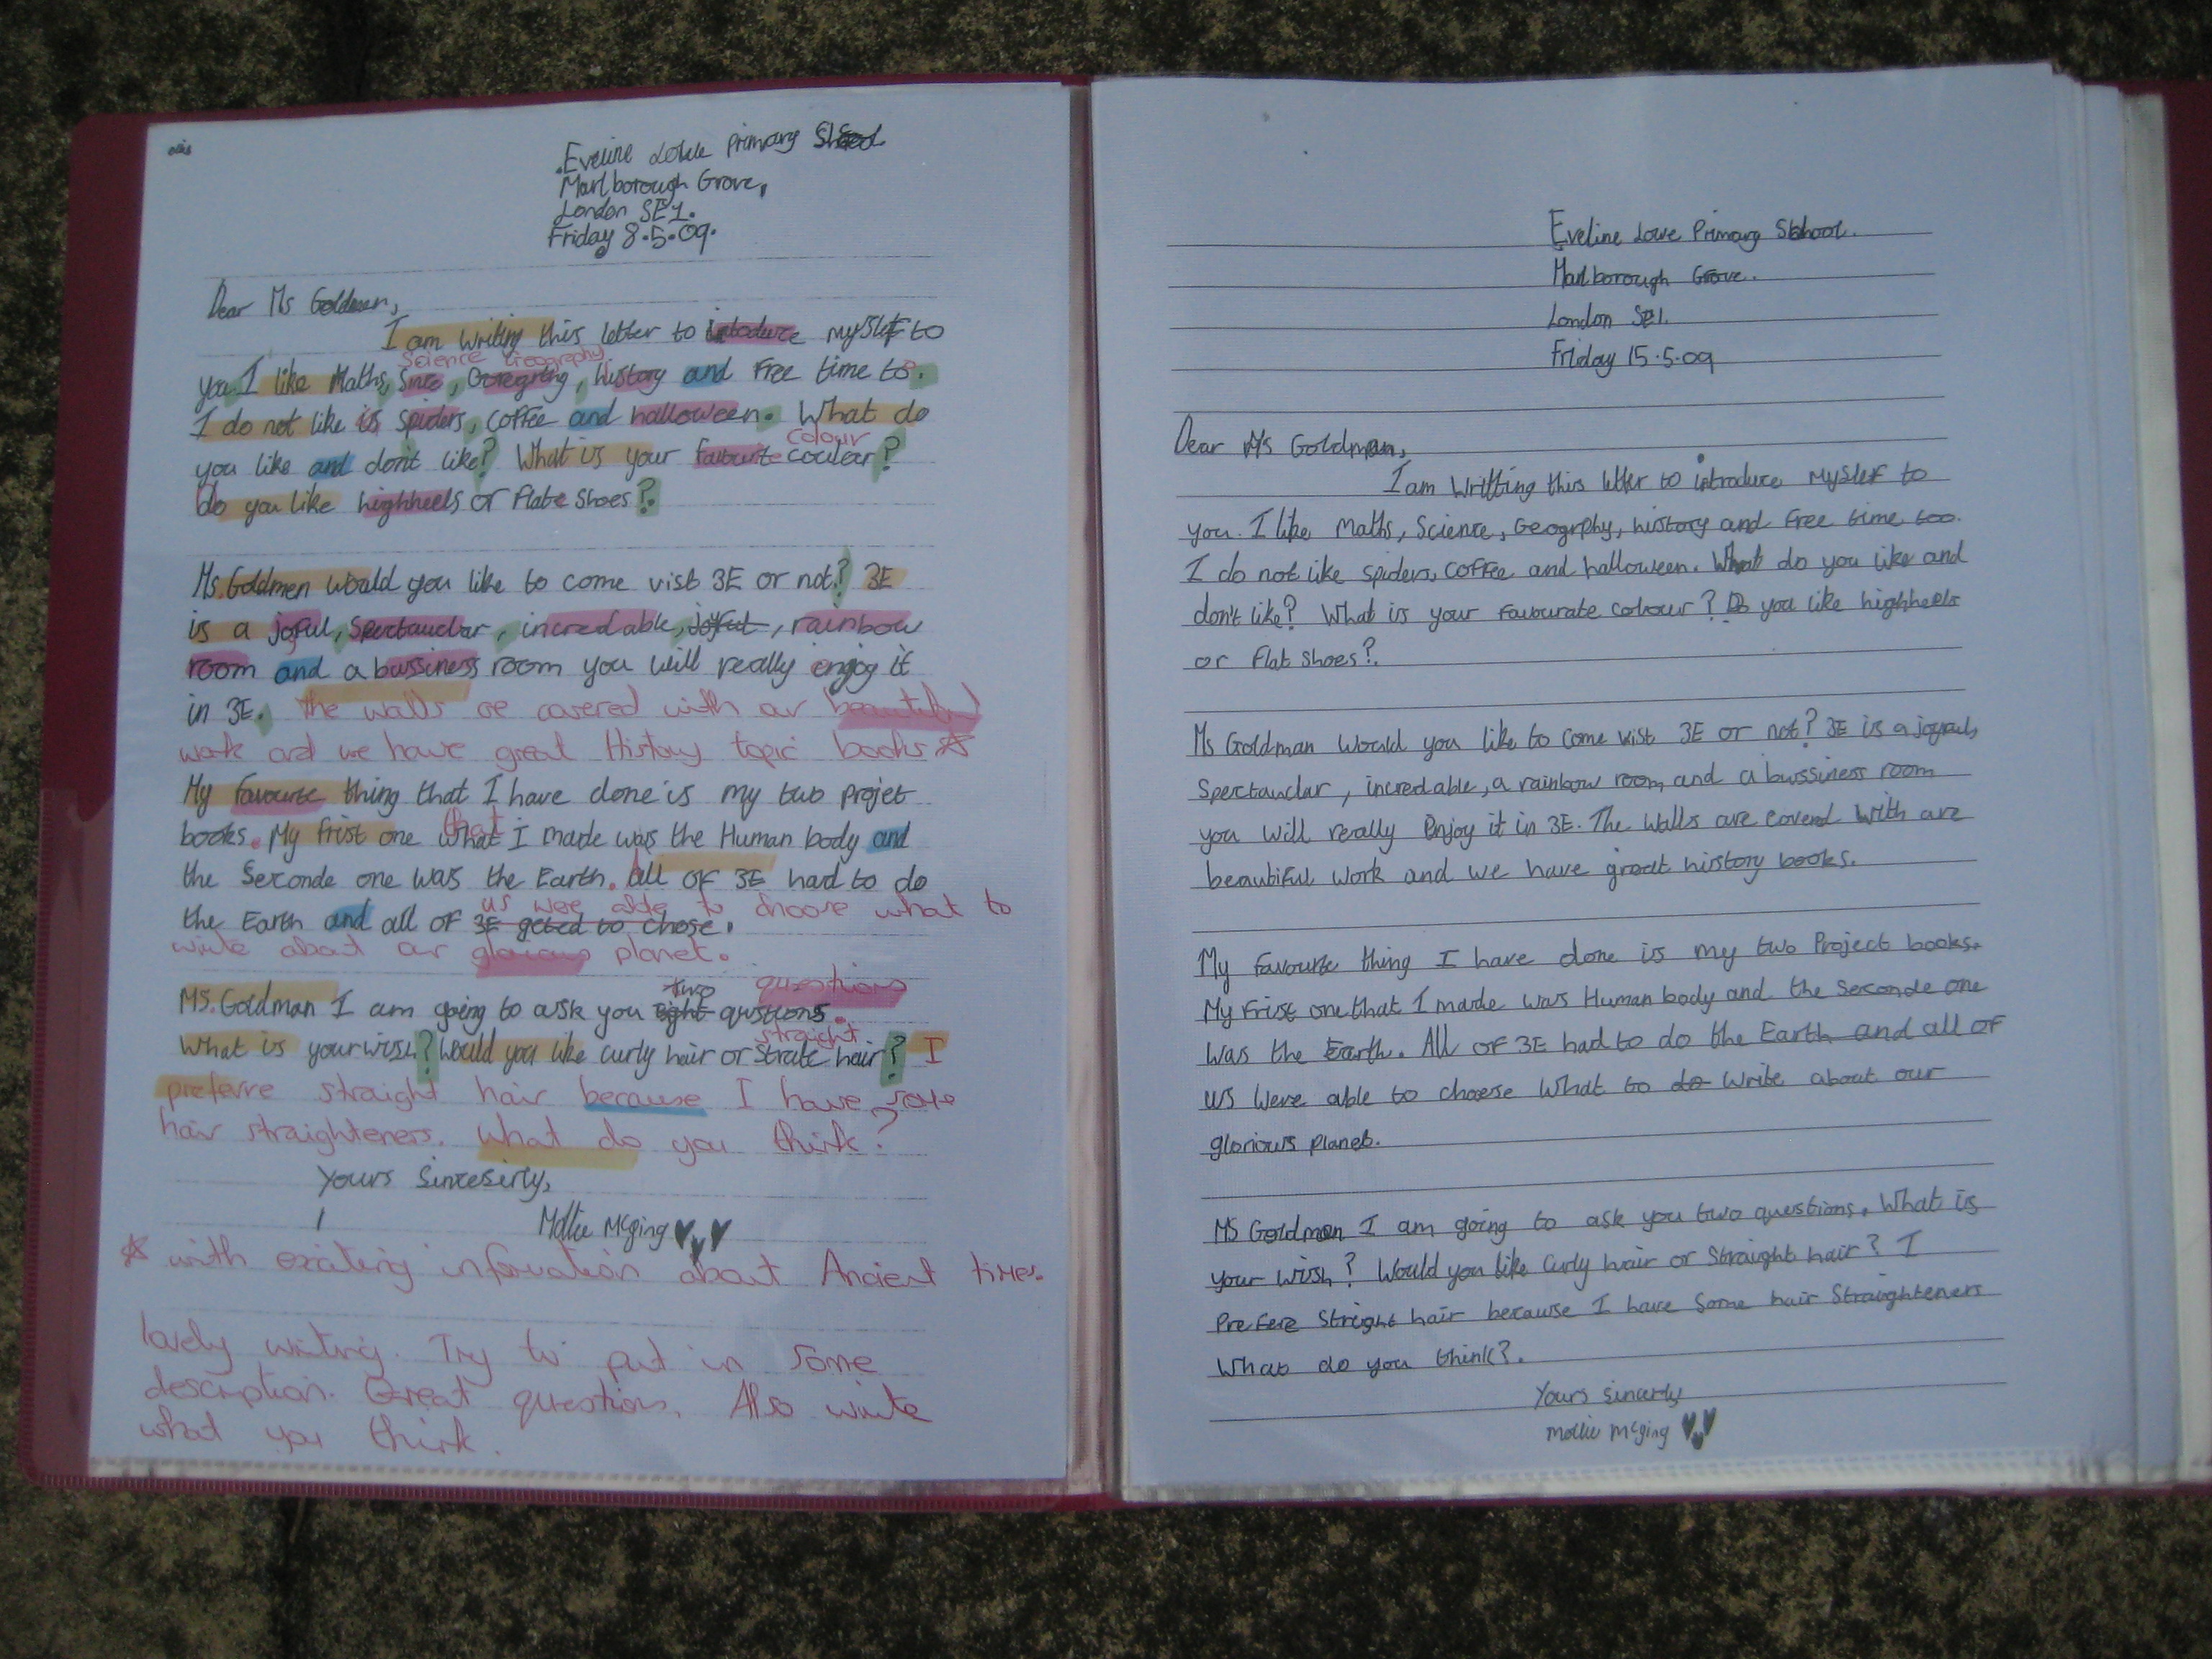 Eveline Lowe Primary
Marlborough Grove,
London SE1.
Friday 8.5.09.
Dear Ms Goldman,
I am writing this letter to intoduce myslef to
Science Geography
you. I like Maths, Since, Goregrthg, history and Free time to.
I do not like is spiders, coffee and halloween. What do
colour
you like and don't like? What is your favourite coulear?
Do you like highheels or flate shoes?.
Ms. Goldmen would you like to come vist 3E or not? 3E
is a joful, Spectauclar, incredable, joyful, rainbow
room and a bussiness room you will really enjoy it
in 3E. The walls are covered with our beautiful
work and we have great History topic books ☆
My favourte thing that I have done is my two projet
that
books. My frist one what I made was the Human body and
the Seconde one was the Earth. All of 3E had to do
us were able to choose what to
the Earth and all of 3E geted to chose.
write about our glorious planet.
two questions
MS. Goldman I am going to ask you eight qustions.
straight
What is your wish? Would you like curly hair or strate hair? I
preferre straight hair because I have some
hair straighteners. What do you think?
Yours Sincesirly,
Mollie McGing
☆ with exciting information about Ancient times.
lovely writing. Try to put in some
description. Great questions. Also write
what you think.
Eveline Lowe Primary School.
Marlborough Grove.
London SE1.
Friday 15.5.09
Dear Ms Goldman,
I am Writting this letter to introduce myslef to
you. I like Maths, Science, Geogrphy, history and Free time too.
I do not like spiders, coffee and halloween. What do you like and
don't like? What is your favourate colour? Do you like highheels
or flat shoes?.
Ms Goldman Would you like to come vist 3E or not? 3E is a joyful,
Spectauclar, incredable, a rainbow room and a bussiness room
you will really enjoy it in 3E. The Walls are coverd with are
beautiful work and we have great history books.
My favourte thing I have done is my two Project books.
My Frist one that I made was Human body and the Seconde one
was the Earth. All OF 3E had to do the Earth and all OF
us were able to choose what to do write about our
glorious planet.
MS Goldman I am going to ask you two questions. What is
your wish? Would you like curly hair or Straight hair? I
Prefere Stright hair because I have some hair Straighteners
What do you think?.
Yours sincerly
Mollie McGing